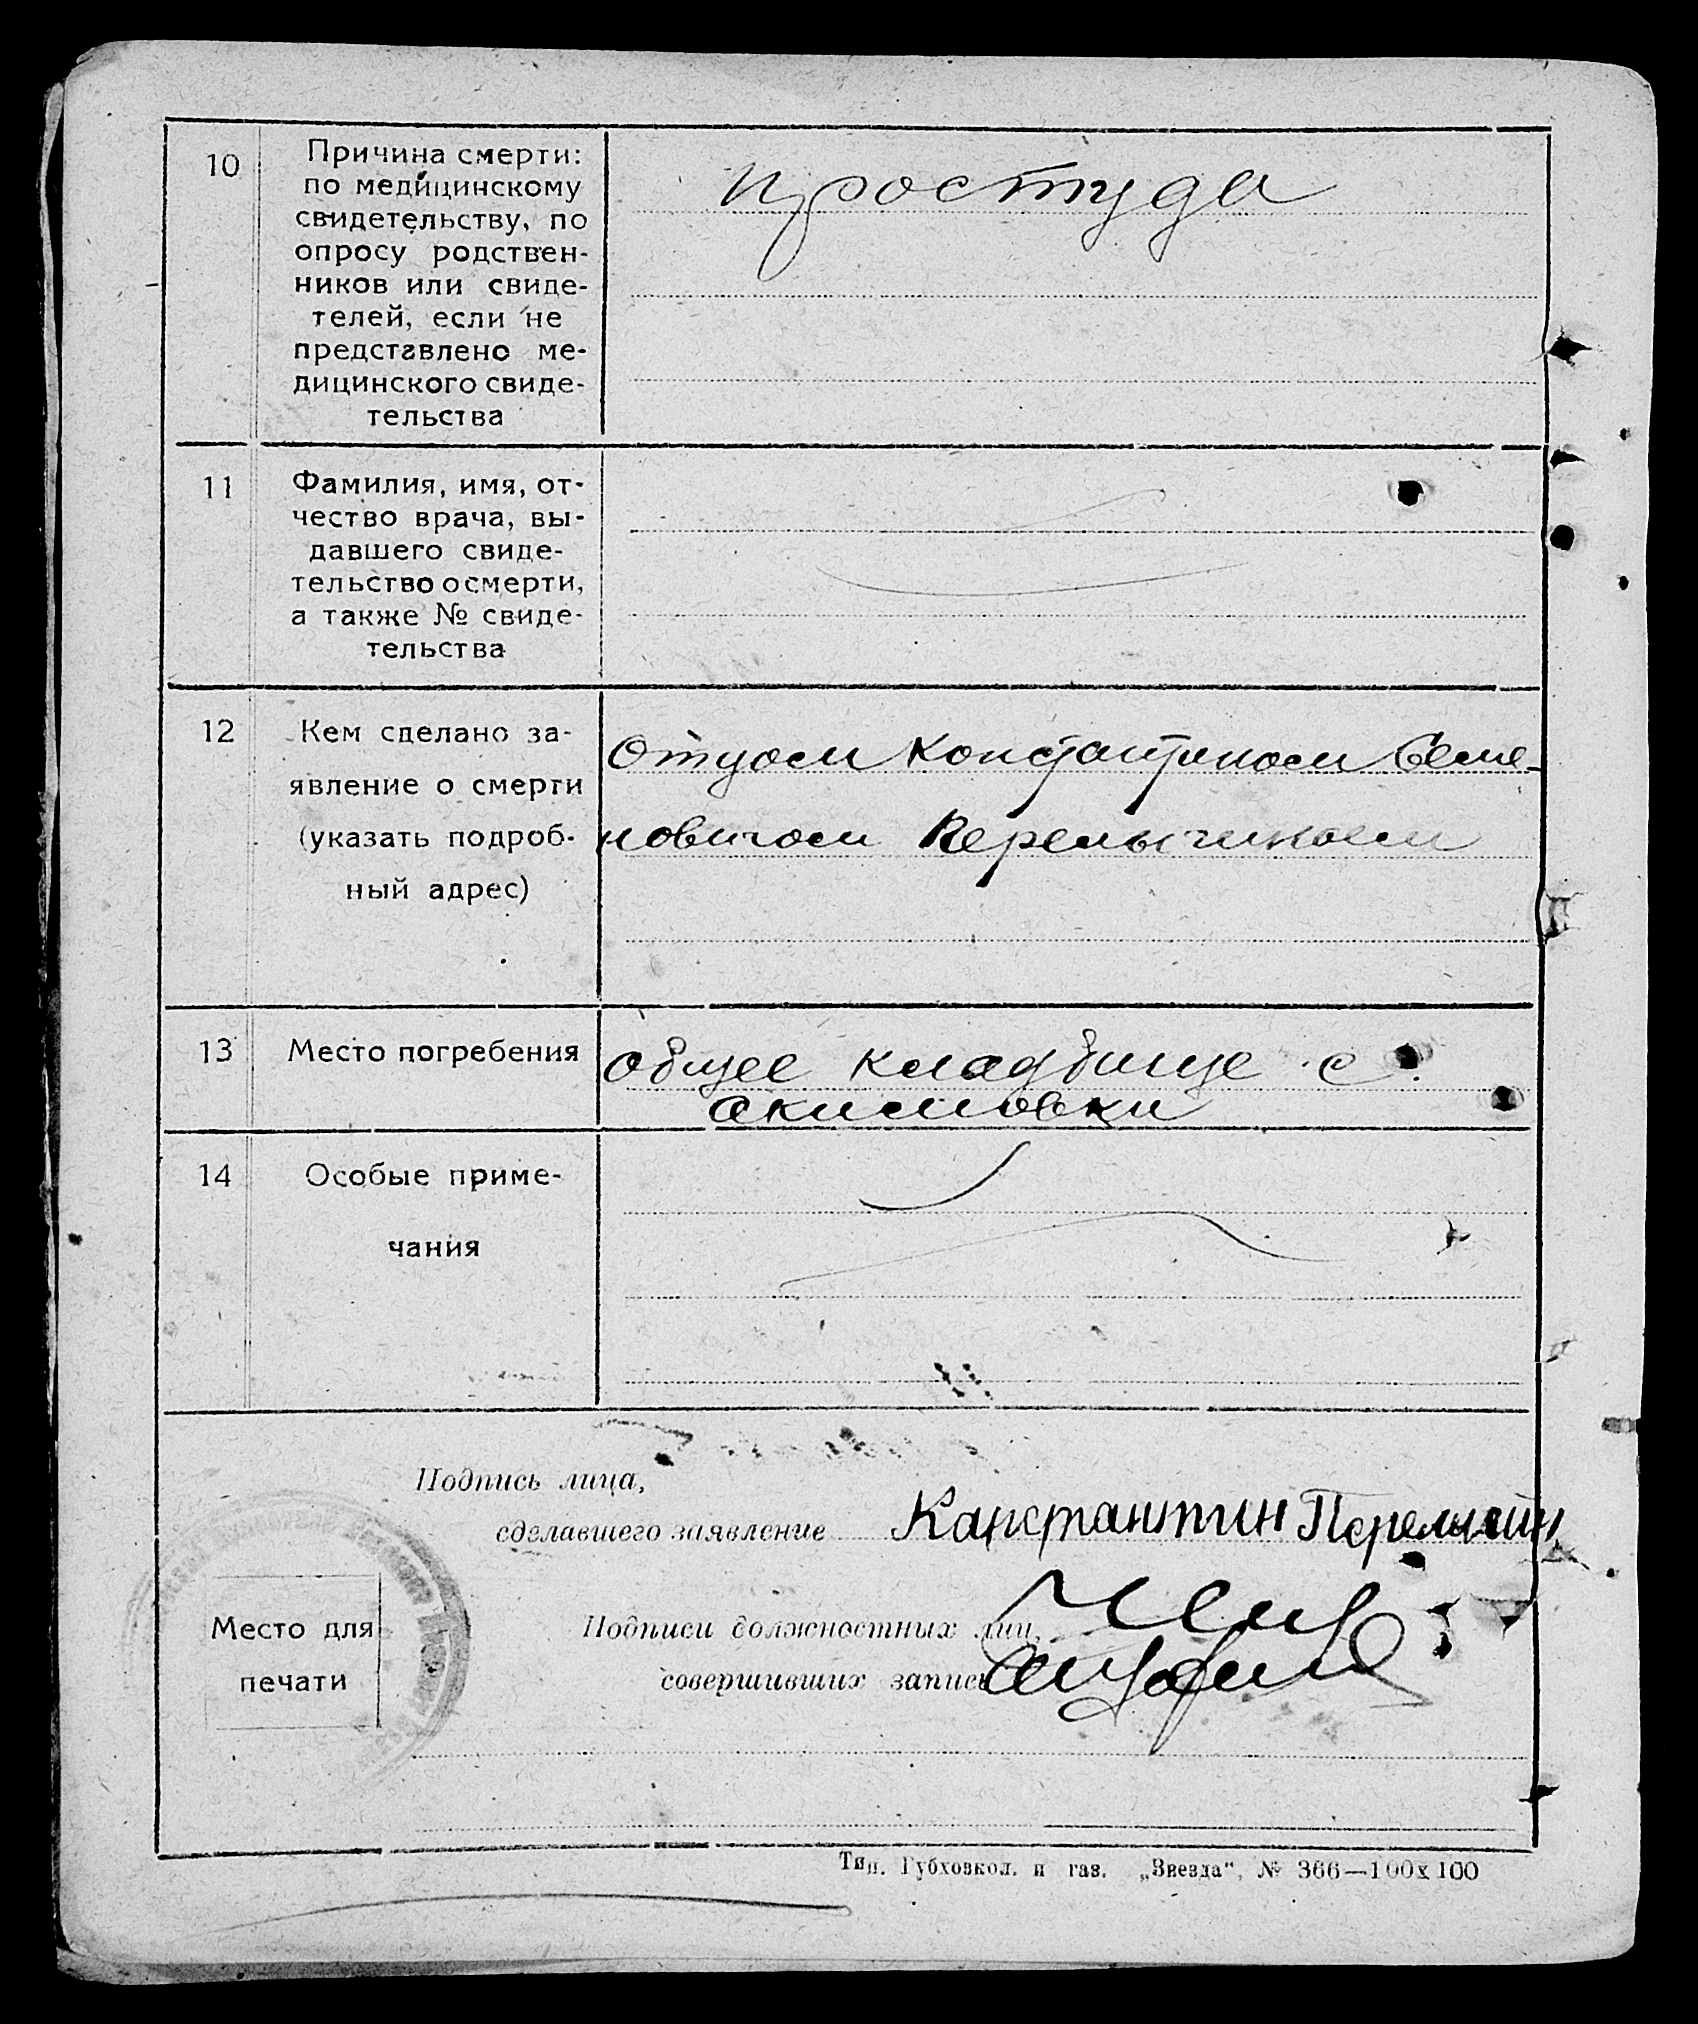 10
Причина смерти:
по медицинскому
свидетельству, по
опросу родствен-
ников или свиде-
телей, если не
представлено ме-
дицинского свиде-
тельства
простуда
11
Фамилия, имя, от-
чество врача, вы-
давшего свиде-
тельство о смерти,
а также № свиде-
тельства
12
Кем сделано за-
явление о смерти
(указать подроб-
ный адрес)
Отцом Константином Семе-
новичом Перемычиком
13
Место погребения
Общее кладбище с.
Акимовки
14
Особые приме-
чания
Подпись лица,
сделавшего заявление Канстантин
Место для
печати
Подписи должностных лиц,
совершивших запись
Тип. Губхозкол. и газ. „Звезда“, № 366—100х100